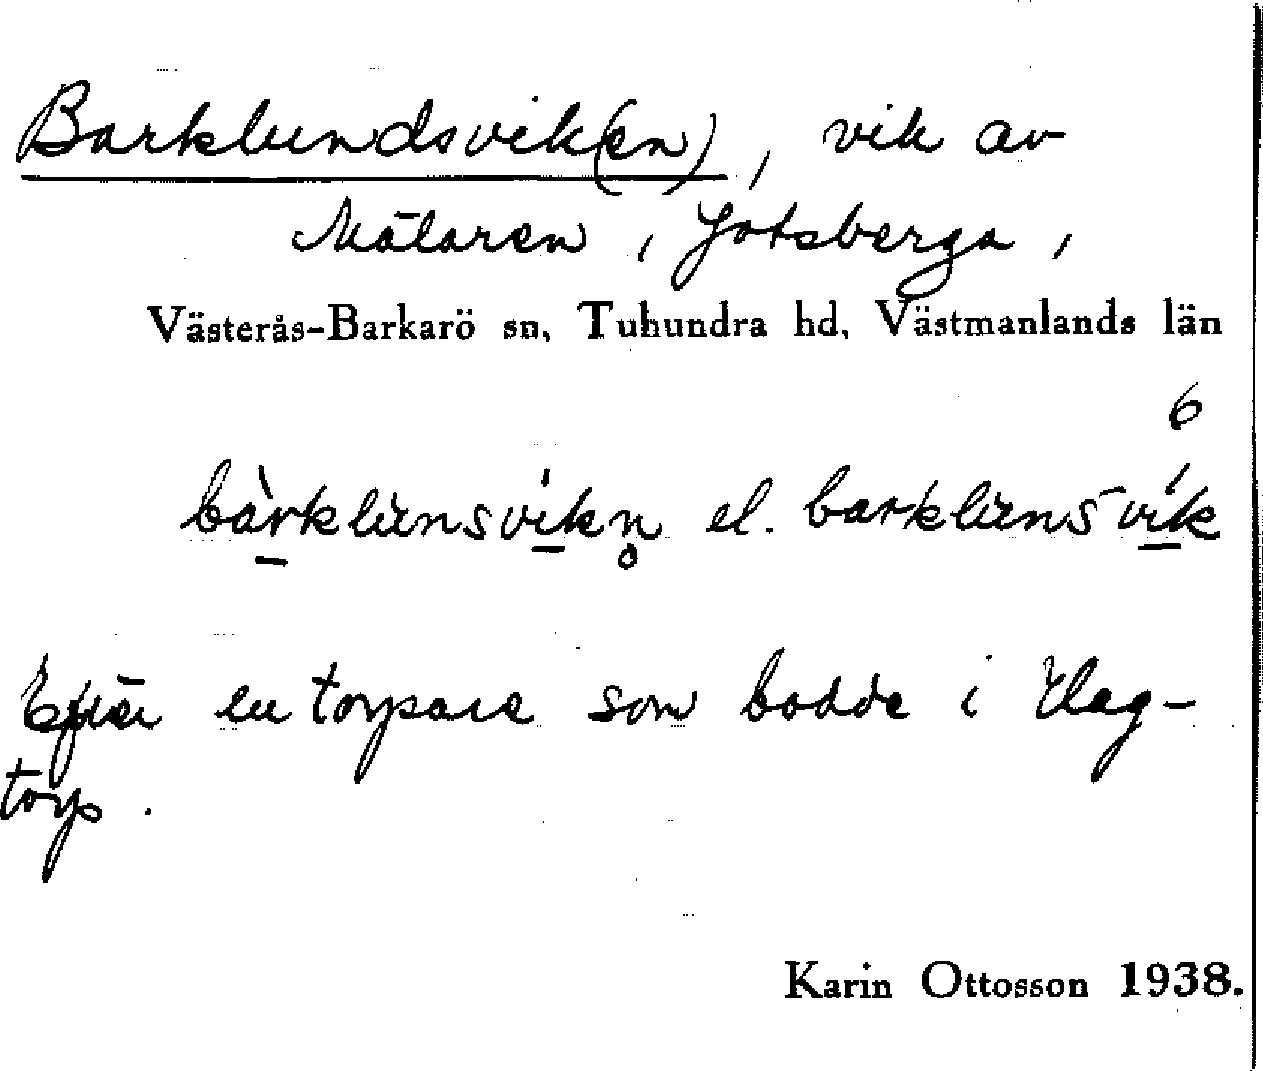 Barklundsvik(en), vik av
Mälaren, Gotsberga,
Västerås-Barkarö sn, Tuhundra hd, Västmanlands län
6
bàrklunsvíkn̥ el. barklunsvík
Efter en torpare som bodde i Hag-
torp.
Karin Ottosson 1938.